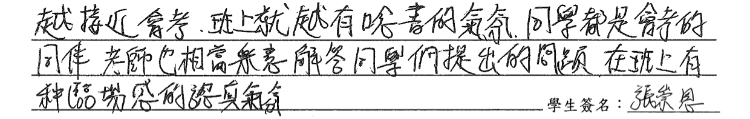 越接近會考、班上就越有唸書的氣氛、同學都是會考的
同伴 老師也相當樂意解答同學們提出的問題 在班上有
種臨場感的認真氣氛 學生簽名：張崇恩